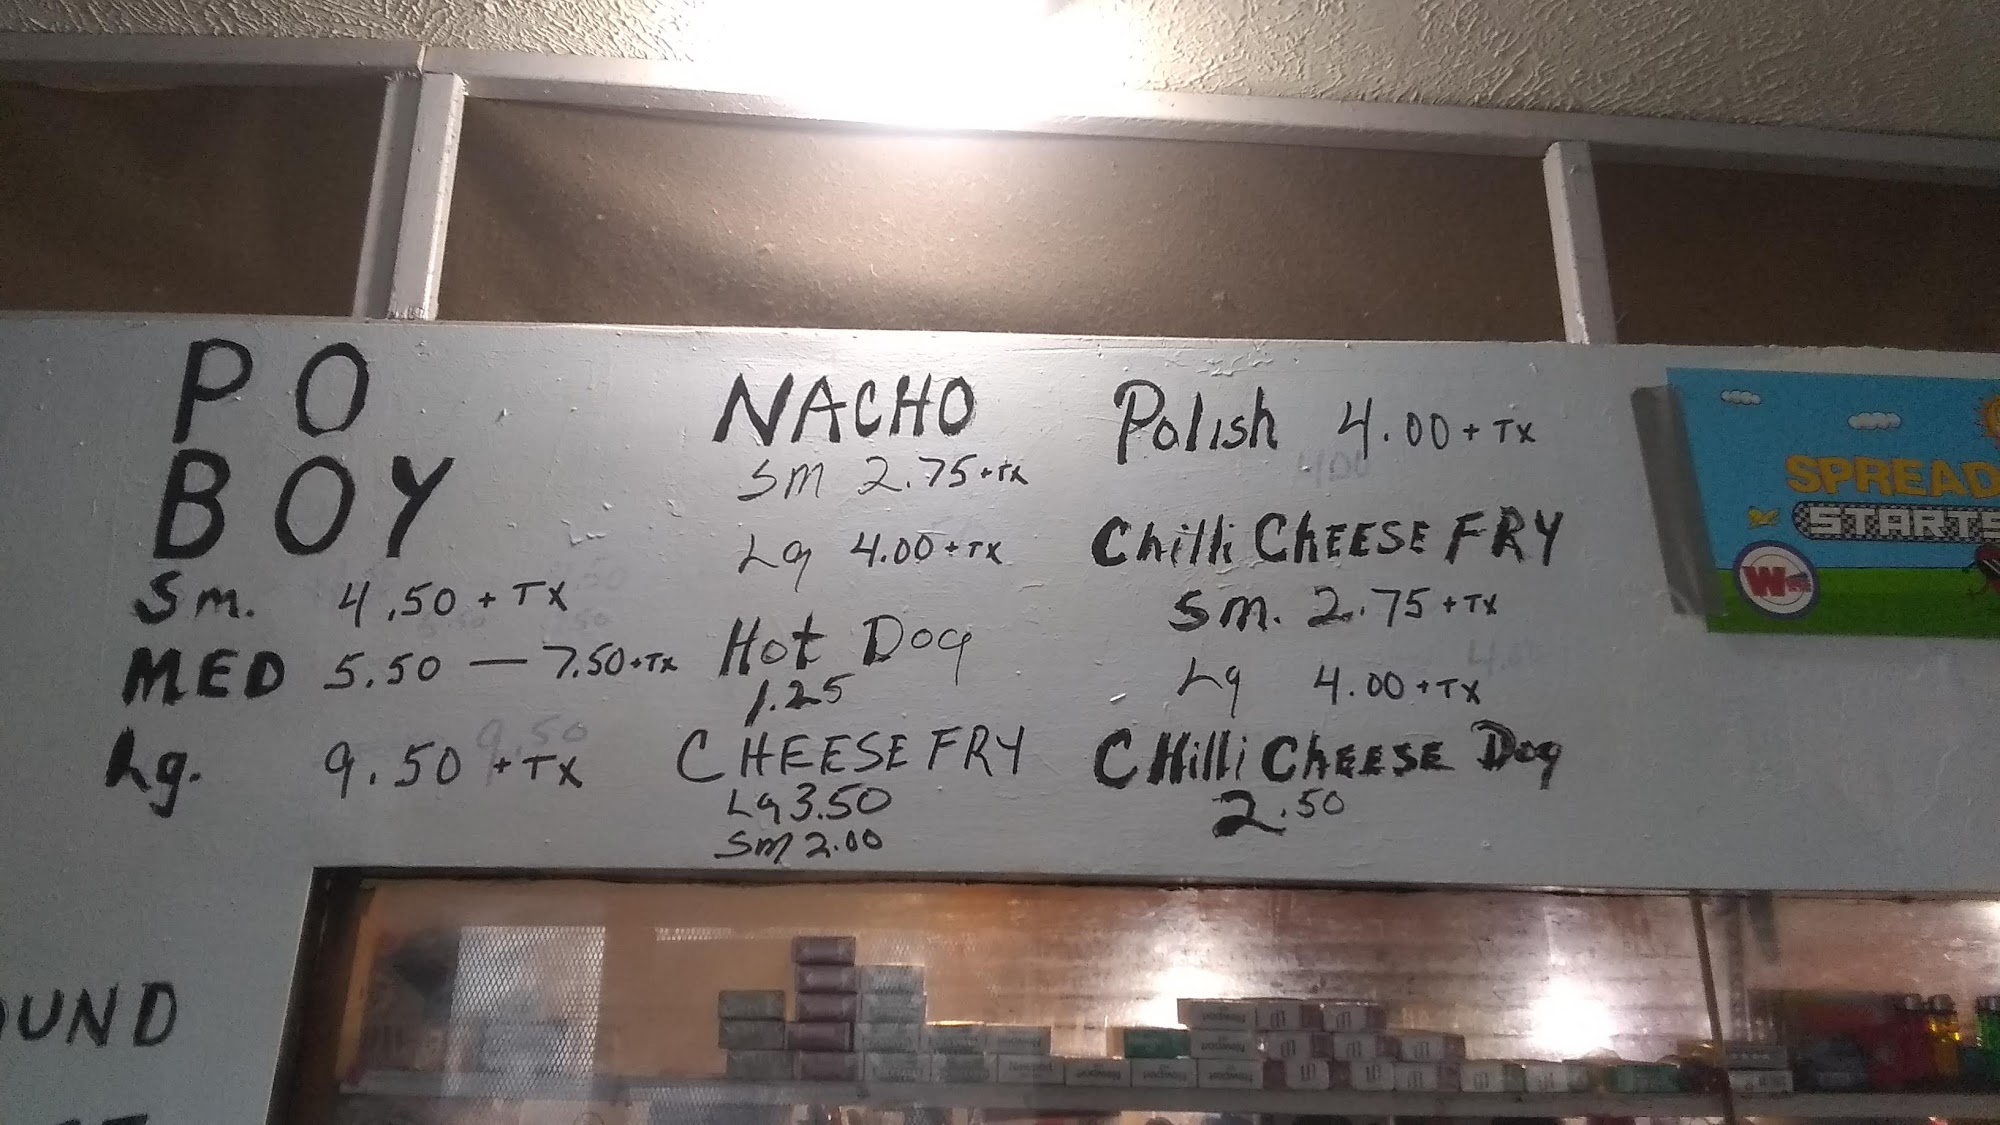 PO
BOY
Sm. 4.50 + TX
MED 5.50 — 7.50 + TX
Lg. 9.50 + TX
NACHO
SM 2.75 + TX
Lg 4.00 + TX
Hot Dog
1.25
CHEESE FRY
Lg 3.50
SM 2.00
Polish 4.00 + TX
4.00
Chilli CHEESE FRY
Sm. 2.75 + TX
Lg 4.00 + TX
CHilli CHEESE Dog
2.50
SPREAD
STARTS
W
UND
Newport
Newport
Newport
Newport
Newport